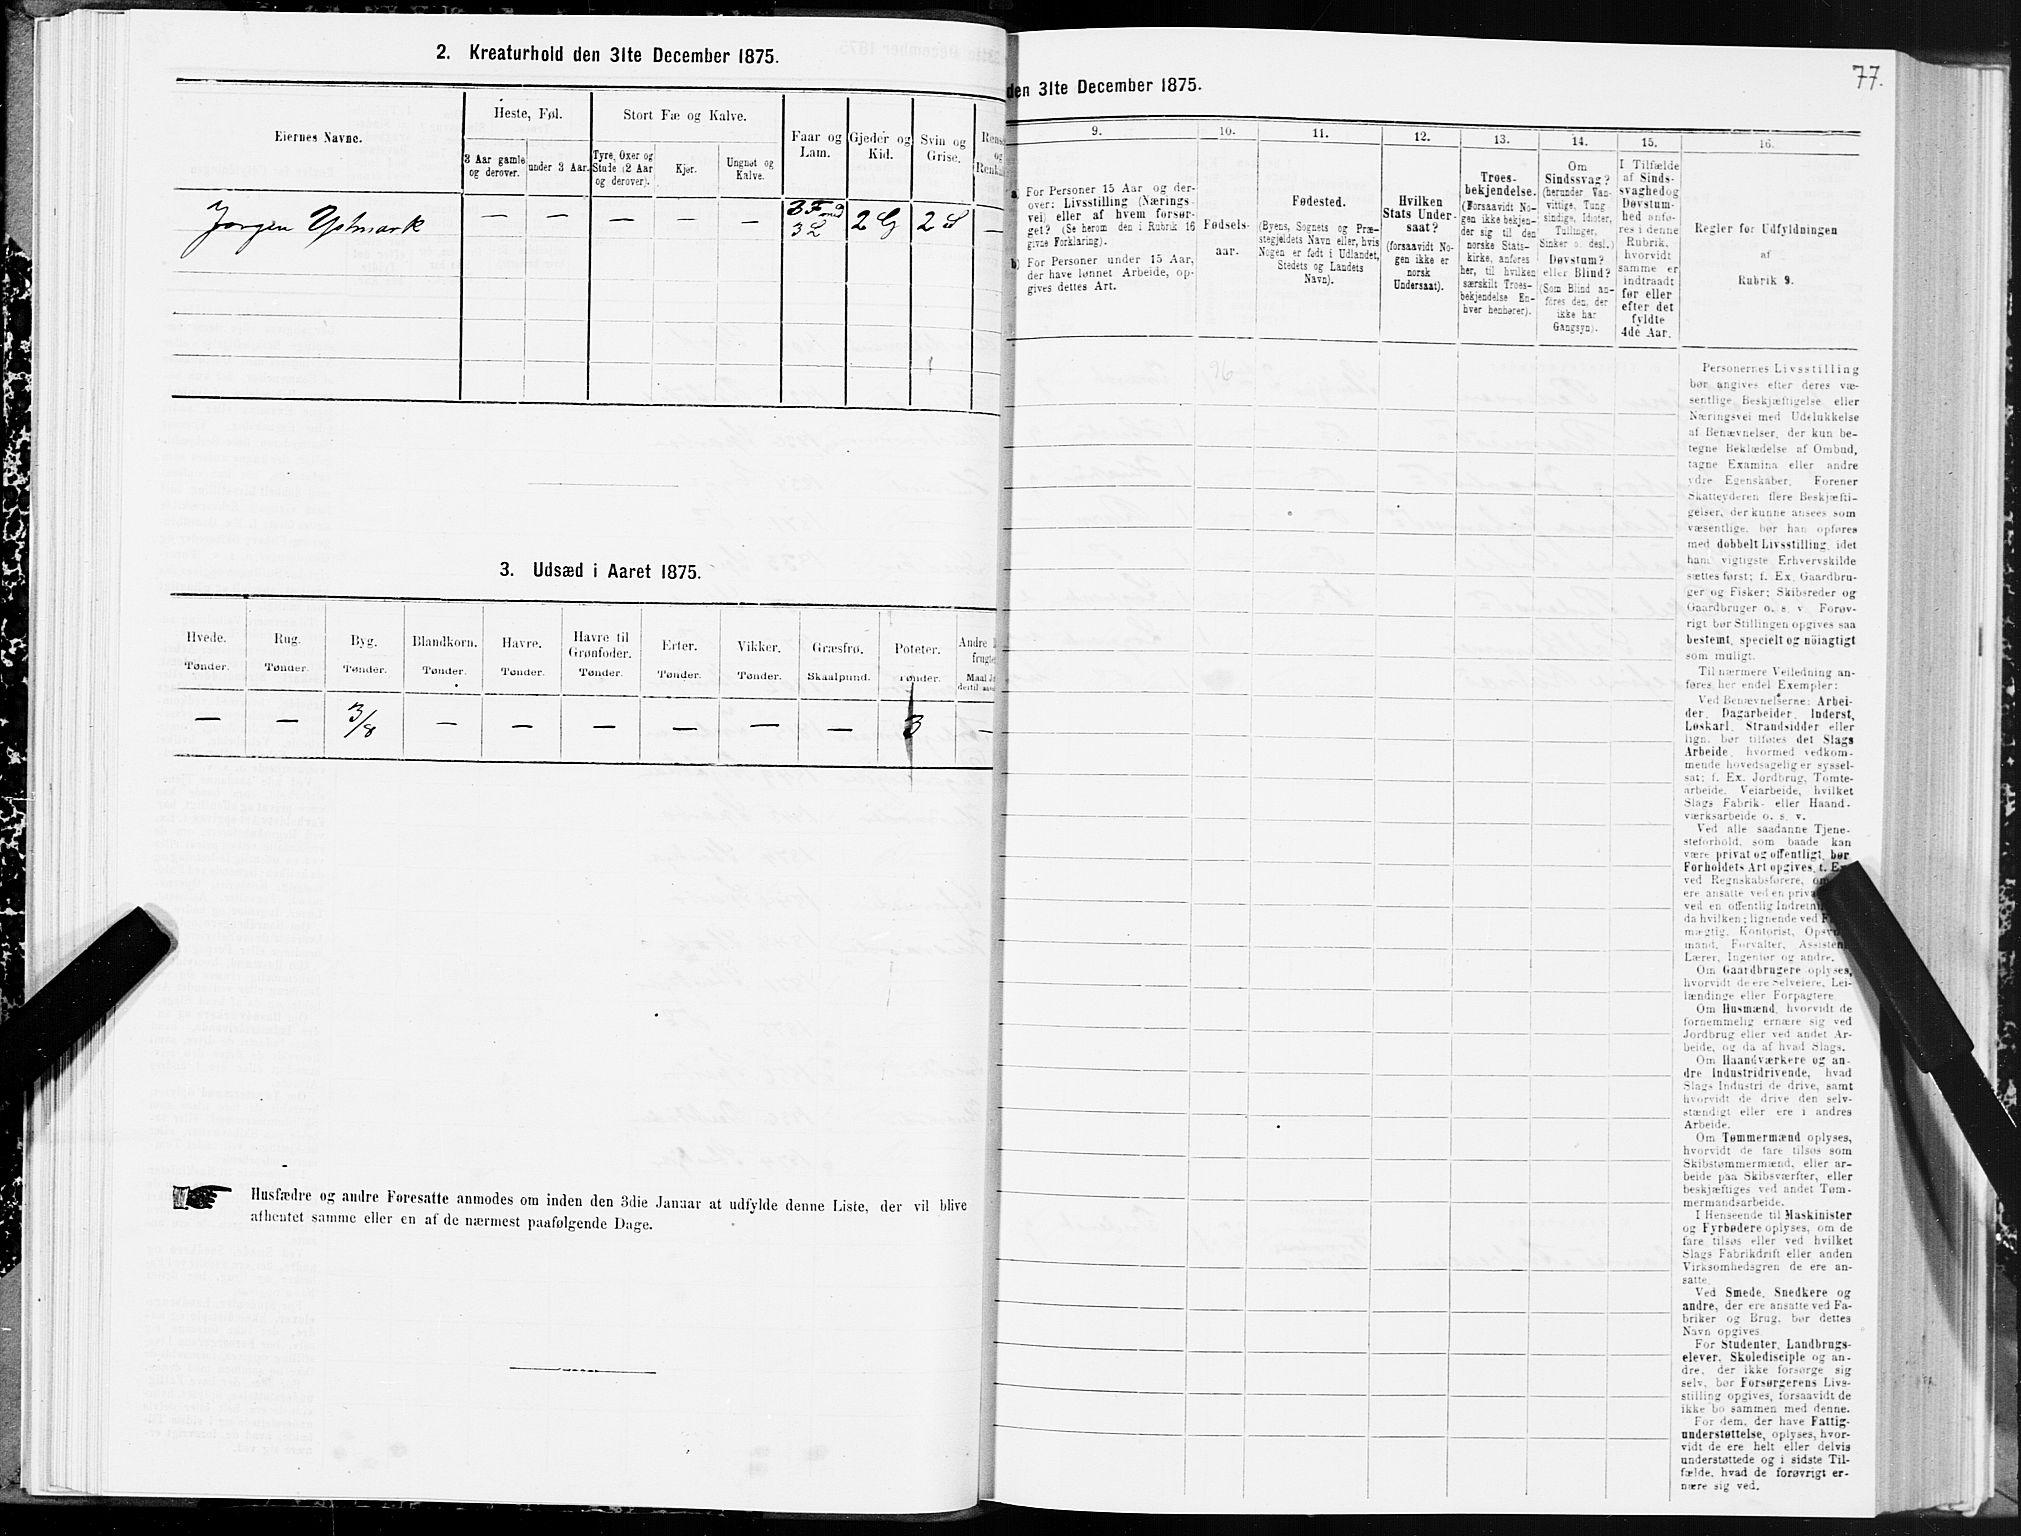 2. Kreaturhold den 31te December 1875.
Eiernes Navne.
Heste, Føl.
3 Aar gamle
og derover.
under 3 Aar.
Stort Fæ og Kalve.
Tyre, Oxer og
Stude (2 Aar
og derover).
Kjør.
Ungnøt og
Kalve.
Faar og
Lam.
Gjeder og
Kid.
Svin og
Grise.
Rens
og
Renka
Jørgen — — — — — 3 F 2 G 2 S —
3 L
3. Udsæd i Aaret 1875.
Hvede. Rug. Byg. Blandkorn. Havre. Havre til Grønfoder. Erter. Vikker. Græsfrø. Poteter. Andre
frugte
Tønder. Tønder. Tønder. Tønder. Tønder. Tønder. Tønder. Tønder. Skaalpund. Tønder. Maal
— — 3/8 — — — — — — 3 —
Husfædre og andre Foresatte anmodes om inden den 3die Januar at udfylde denne Liste, der vil blive
afhentet samme eller en af de nærmest paafølgende Dage.
77.
den 31te December 1875.
9. 10. 11. 12. 13. 14. 15. 16.
a) For Personer 15 Aar og der-
over: Livsstilling (Nærings-
vei) eller af hvem forsør-
get? (Se herom den i Rubrik 16
givne Forklaring).
b) For Personer under 15 Aar,
der have lønnet Arbeide, op-
gives dettes Art.
Fødsels-
aar.
Fødested.
(Byens, Sognets og Præ-
stegjeldets Navn eller, hvis
Nogen er født i Udlandet,
Stedets og Landets
Navn).
Hvilken
Stats Under-
saat?
(forsaavidt No-
gen ikke er
norsk
Undersaat).
Troes-
bekjendelse.
(Forsaavidt No-
gen ikke bekjen-
der sig til den
norske Stats-
kirke, anføres
her, til hvilken
særskilt Troes-
bekjendelse En-
hver henhører).
Om
Sindssvag?
(herunder Van-
vittige, Tung
sindige, Idioter,
Tullinger,
Sinker o. desl.)
Døvstum?
eller Blind?
(Som Blind an-
føres den, der
ikke har
Gangsyn).
I Tilfælde
af Sinds-
svaghed og
Døvstum-
hed anfø-
res i denne
Rubrik,
hvorvidt
samme er
indtraadt
før eller
efter det
fyldte
4de Aar.
Regler for Udfyldningen
af
Rubrik 9.
Personernes Livsstilling
bør angives efter deres væ-
sentlige Beskjæftigelse eller
Næringsvei med Udelukkelse
af Benævnelser, der kun be-
tegne Beklædelse af Ombud,
tagne Examina eller andre
ydre Egenskaber. Forener
Skatteyderen flere Beskjæfti-
gelser, der kunne ansees som
væsentlige, bør han opføres
med dobbelt Livsstilling, idet
hans vigtigste Erhvervskilde
sættes først; f. Ex. Gaardbru-
ger og Fisker; Skibsreder og
Gaardbruger o. s. v. Forøv-
rigt bør Stillingen opgives saa
bestemt, specielt og nøiagtigt
som muligt.
Til nærmere Veiledning an-
føres her endel Exempler:
Ved Benævnelserne: Arbei-
der, Dagarbeider, Inderst,
Løskarl, Strandsidder eller
lign. bør tilføies det Slags
Arbeide, hvormed vedkom-
mende hovedsagelig er syssel-
sat; f. Ex. Jordbrug, Tomte-
arbeide, Veiarbeide, hvilket
Slags Fabrik- eller Haand-
værksarbeide o. s. v.
Ved alle saadanne Tjene-
steforhold, som baade kan
være privat og offentligt, bør
Forholdets Art opgives, f. Ex.
ved Regnskabsførere, om
ere ansatte ved en priva
ved en offentlig Indretni
da hvilken; lignende ved F
mægtig, Kontorist, Opsyns-
mand, Forvalter, Assistent,
Lærer, Ingeniør og andre.
Om Gaardbrugere oplyses,
hvorvidt de ere Selveiere, Lei-
lændinge eller Forpagtere
Om Husmænd, hvorvidt de
fornemmelig ernære sig ved
Jordbrug eller ved andet Ar-
beide, og da af hvad Slags.
Om Haandværkere og an-
dre Industridrivende, hvad
Slags Industri de drive, samt
hvorvidt de drive den selv-
stændigt eller ere i andres
Arbeide.
Om Tømmermænd oplyses,
hvorvidt de fare tilsøs som
Skibstømmermænd, eller ar-
beide paa Skibsværfter, eller
beskjæftiges ved andet Tøm-
mermandsarbeide.
I Henseende til Maskinister
og Fyrbødere oplyses, om de
fare tilsøs eller ved hvilket
Slags Fabrikdrift eller anden
Virksomhedsgren de ere an-
satte.
Ved Smede, Snedkere og
andre, der ere ansatte ved Fa-
briker og Brug, bør dettes
Navn opgives.
For Studenter, Landbrugs-
elever, Skoledisciple og an-
dre, der ikke forsørge sig
selv, bør Forsørgerens Livs-
stilling opgives, forsaavidt de
ikke bo sammen med denne.
For dem, der have Fattig-
understøttelse, oplyses, hvor-
vidt de ere helt eller delvis
understøttede og i sidste Til-
fælde, hvad de forøvrigt er-
nære sig ved.